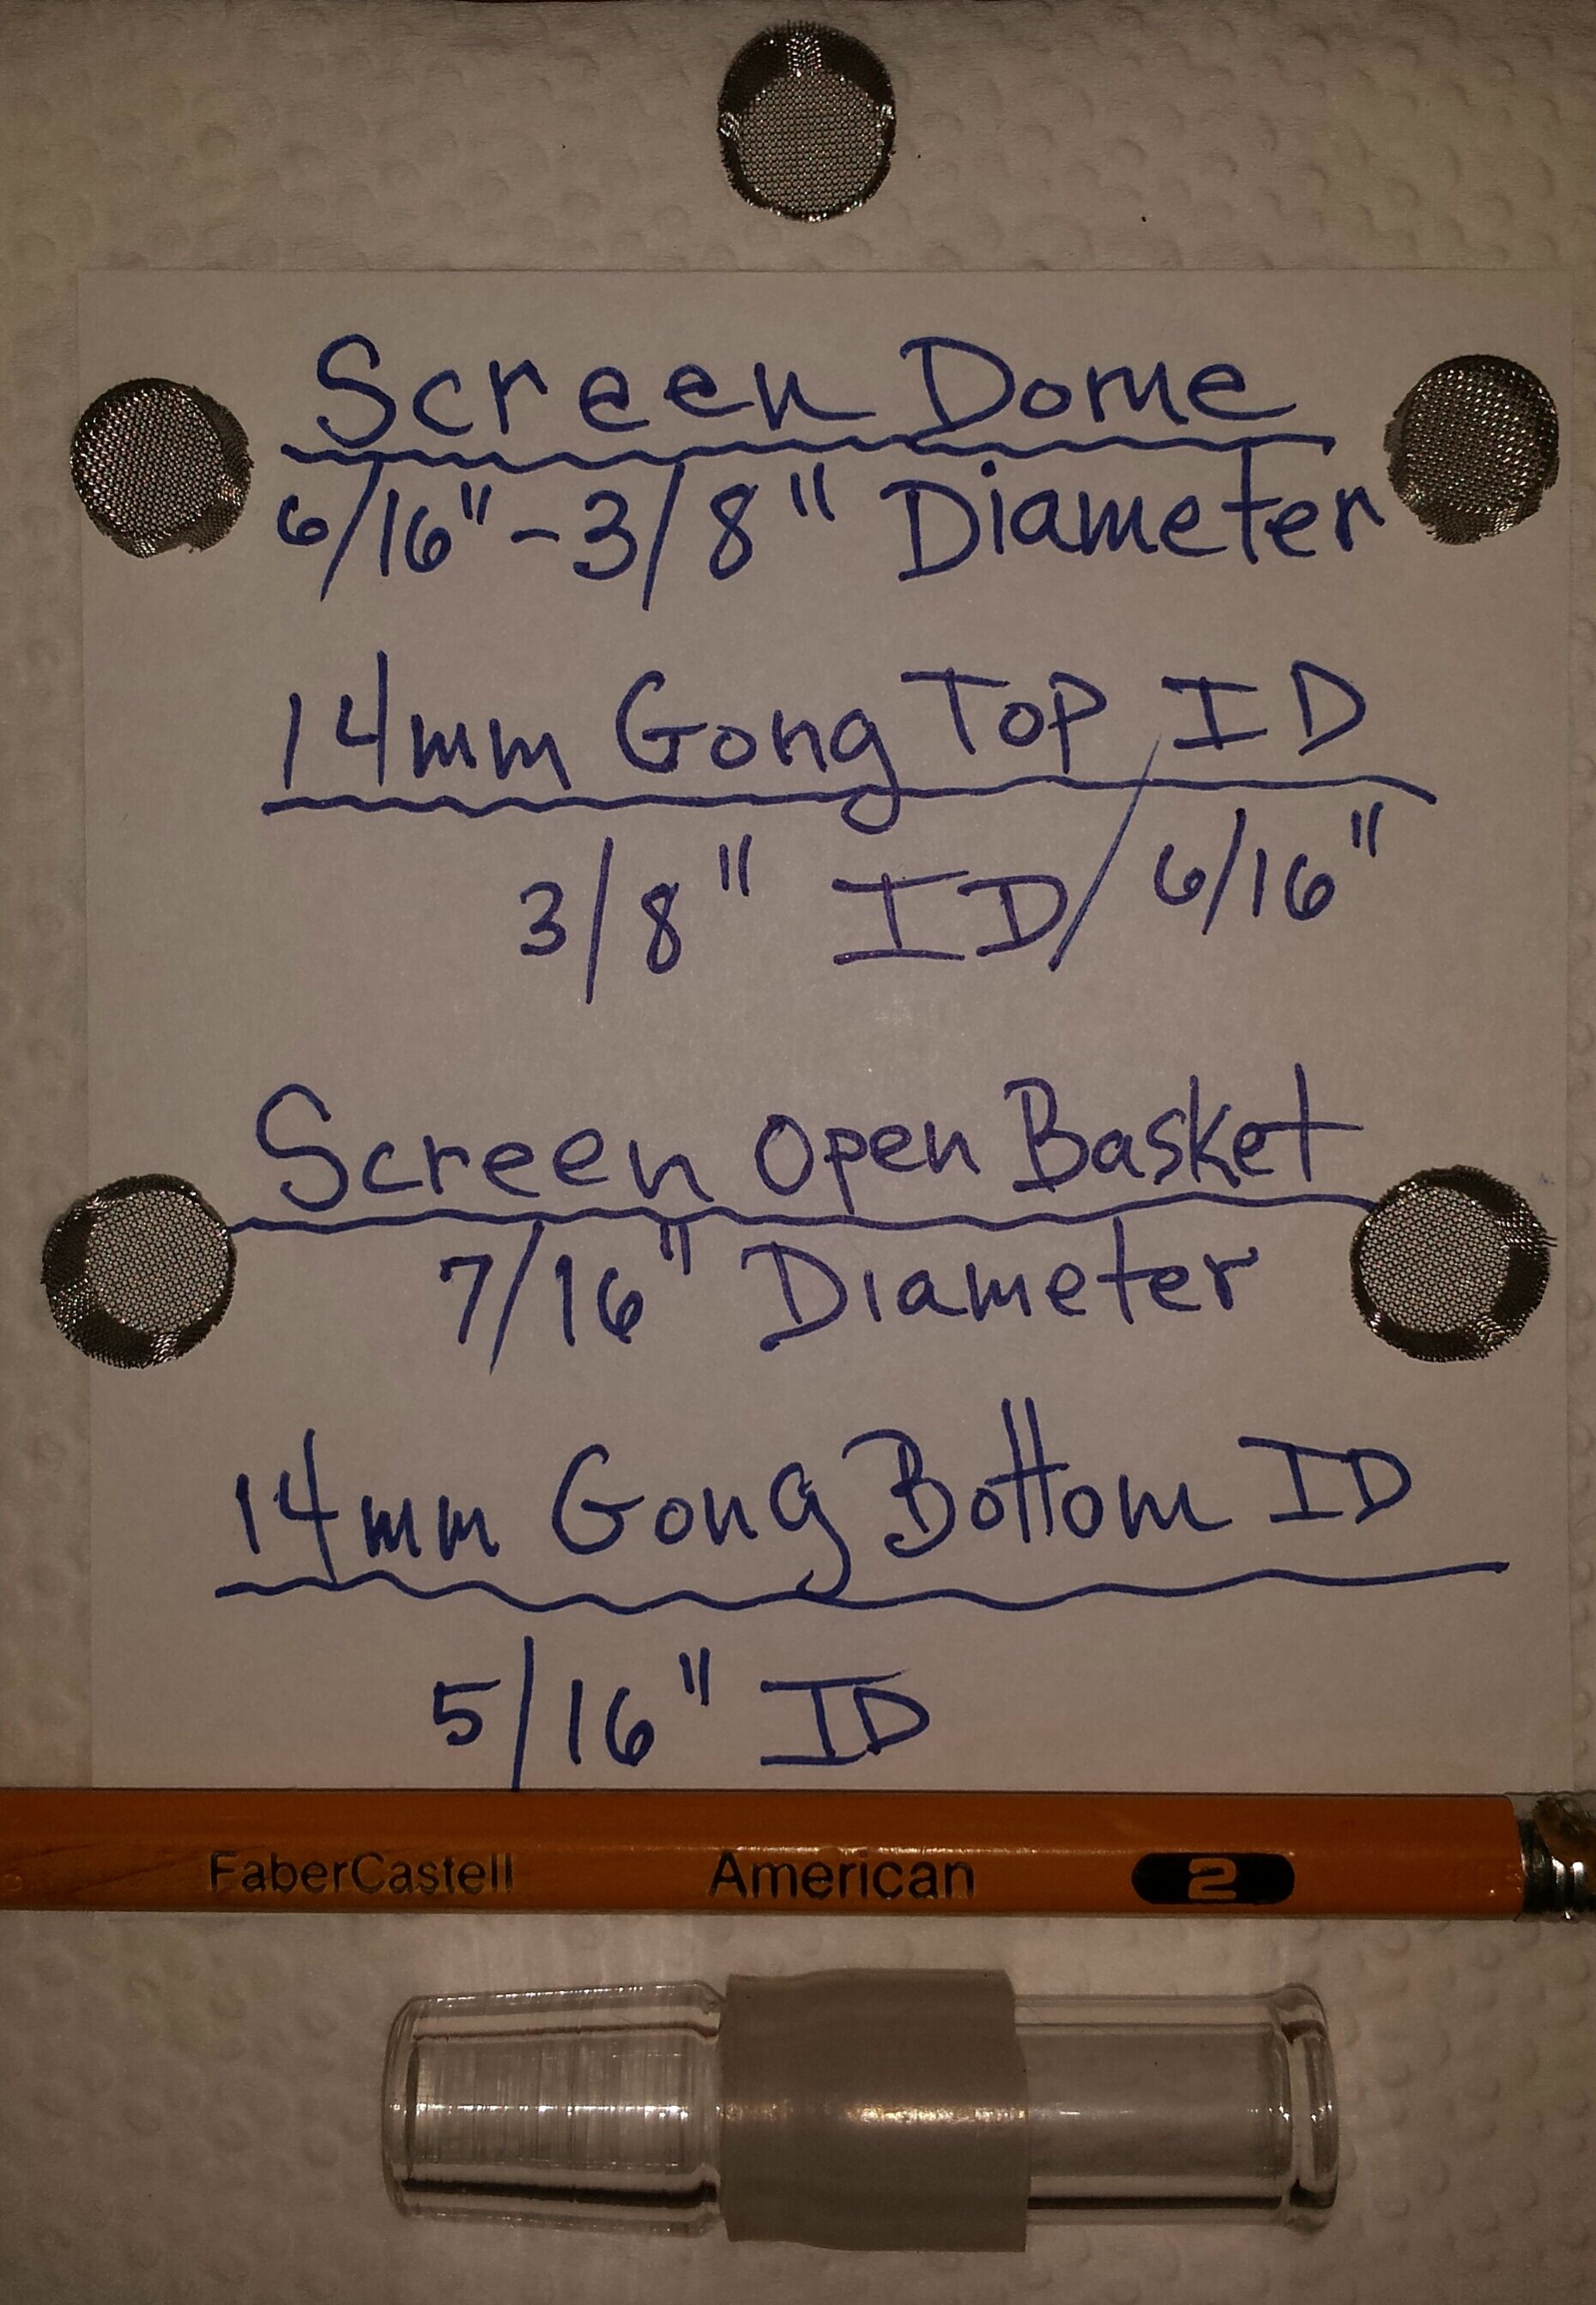 Screen Dome
6/16"-3/8" Diameter
14mm Gong Top ID
3/8" ID/6/16"
Screen Open Basket
7/16" Diameter
14mm Gong Bottom ID
5/16" ID
FaberCastell American 2